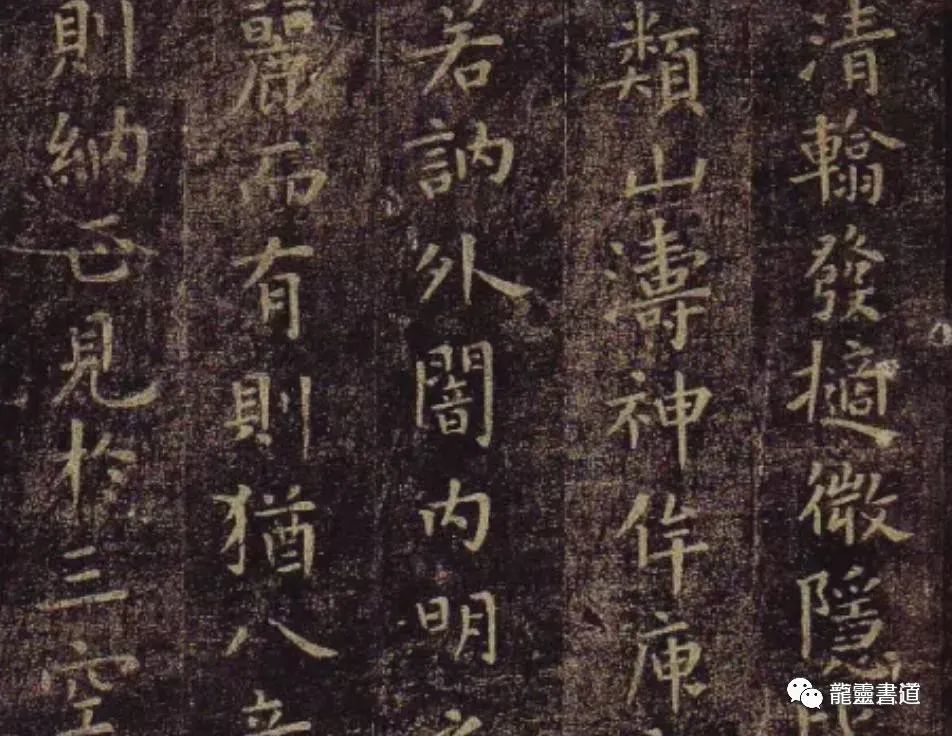 清翰發擿微隱
類山濤神侔庾
若訥外闇内明
麗而有則猶八
則納正見於三空
龍靈書道